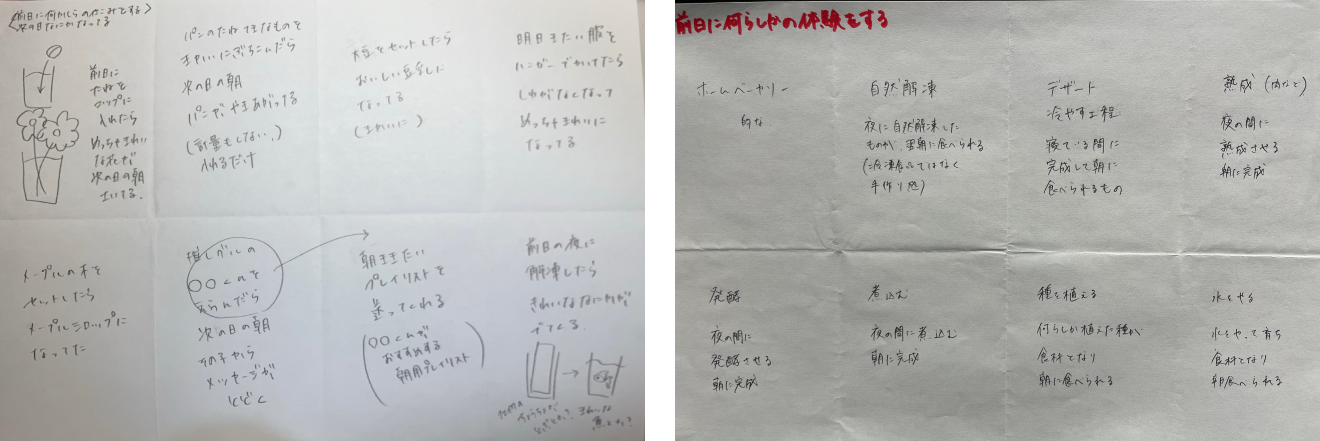 前日に何かしらのやこみをする
次の日なにかなってる
前日に
たねを
コップに
入れたら
めっちゃきれい
な花が
次の日の朝
さいてる.
パンのたね すきなものを
きかいにぶちこんだら
次の日の朝
パンがやきあがってる
(計量もしない、)
入れるだけ
大豆をセットしたら
おいしい豆乳に
なってる
(きれいに)
明日きたい服を
ハンガーでかけてたら
しわがなくなって
めっちゃきれいに
なってる
メープルの木を
セットしたら
メープルシロップに
なってた
推しグルの
〇〇くんを
えらんだら
次の日の朝
その子から
メッセージが
とどく
朝ききたい
プレイリストを
送ってくれる
〇〇くんが
おすすめする
朝用プレイリスト
前日の夜に
解凍したら
きれいななにかが
でてくる.
きれいな
魚とか?
前日に何らしかの体験をする
ホームベーカリー
的な
自然解凍
夜に自然解凍した
ものが、翌朝に食べられる
(冷凍食品ではなく
手作り感)
デザート
冷やす工程
寝ている間に
完成して朝に
食べられるもの
熟成(肉など)
夜の間に
熟成させる
朝に完成
発酵
夜の間に
発酵させる
朝に完成
煮込む
夜の間に煮込む
朝に完成
種を植える
何らしか植えた種が
食材となり
朝に食べられる
水をやる
水をやって育ち
食材となり
朝食べられる